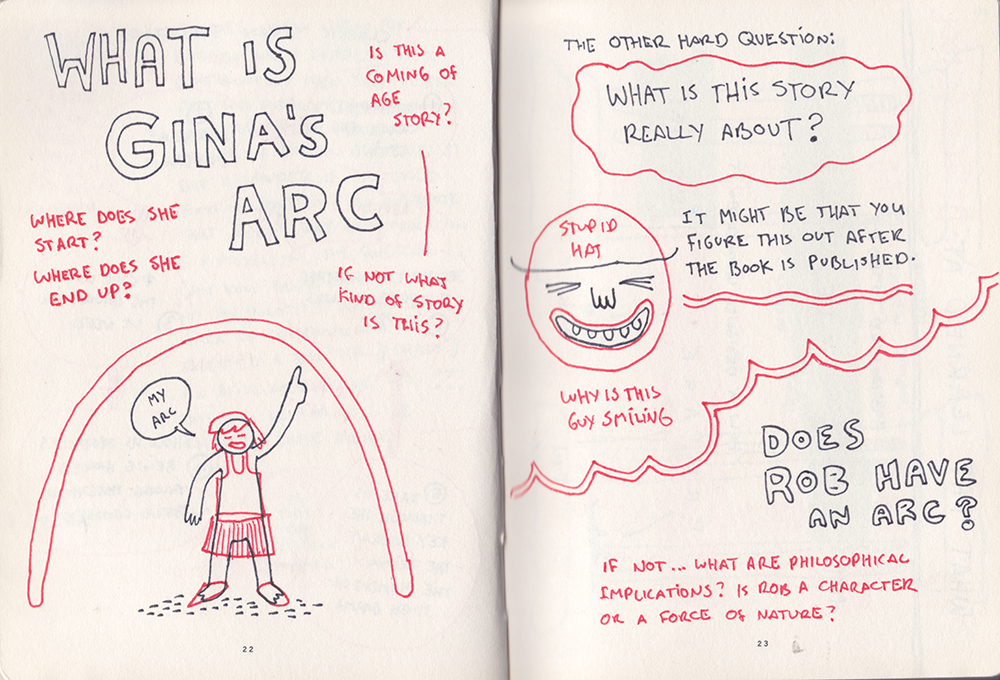 WHAT IS
GINA'S
ARC
IS THIS A
COMING OF
AGE
STORY?
WHERE DOES SHE
START?
WHERE DOES SHE
END UP?
IF NOT WHAT
KIND OF STORY
IS THIS?
MY
ARC
22
THE OTHER HARD QUESTION:
WHAT IS THIS STORY
REALLY ABOUT?
STUPID
HAT
IT MIGHT BE THAT YOU
FIGURE THIS OUT AFTER
THE BOOK IS PUBLISHED.
WHY IS THIS
GUY SMILING
DOES
ROB HAVE
AN ARC?
IF NOT... WHAT ARE PHILOSOPHICAL
IMPLICATIONS? IS ROB A CHARACTER
OR A FORCE OF NATURE?
23